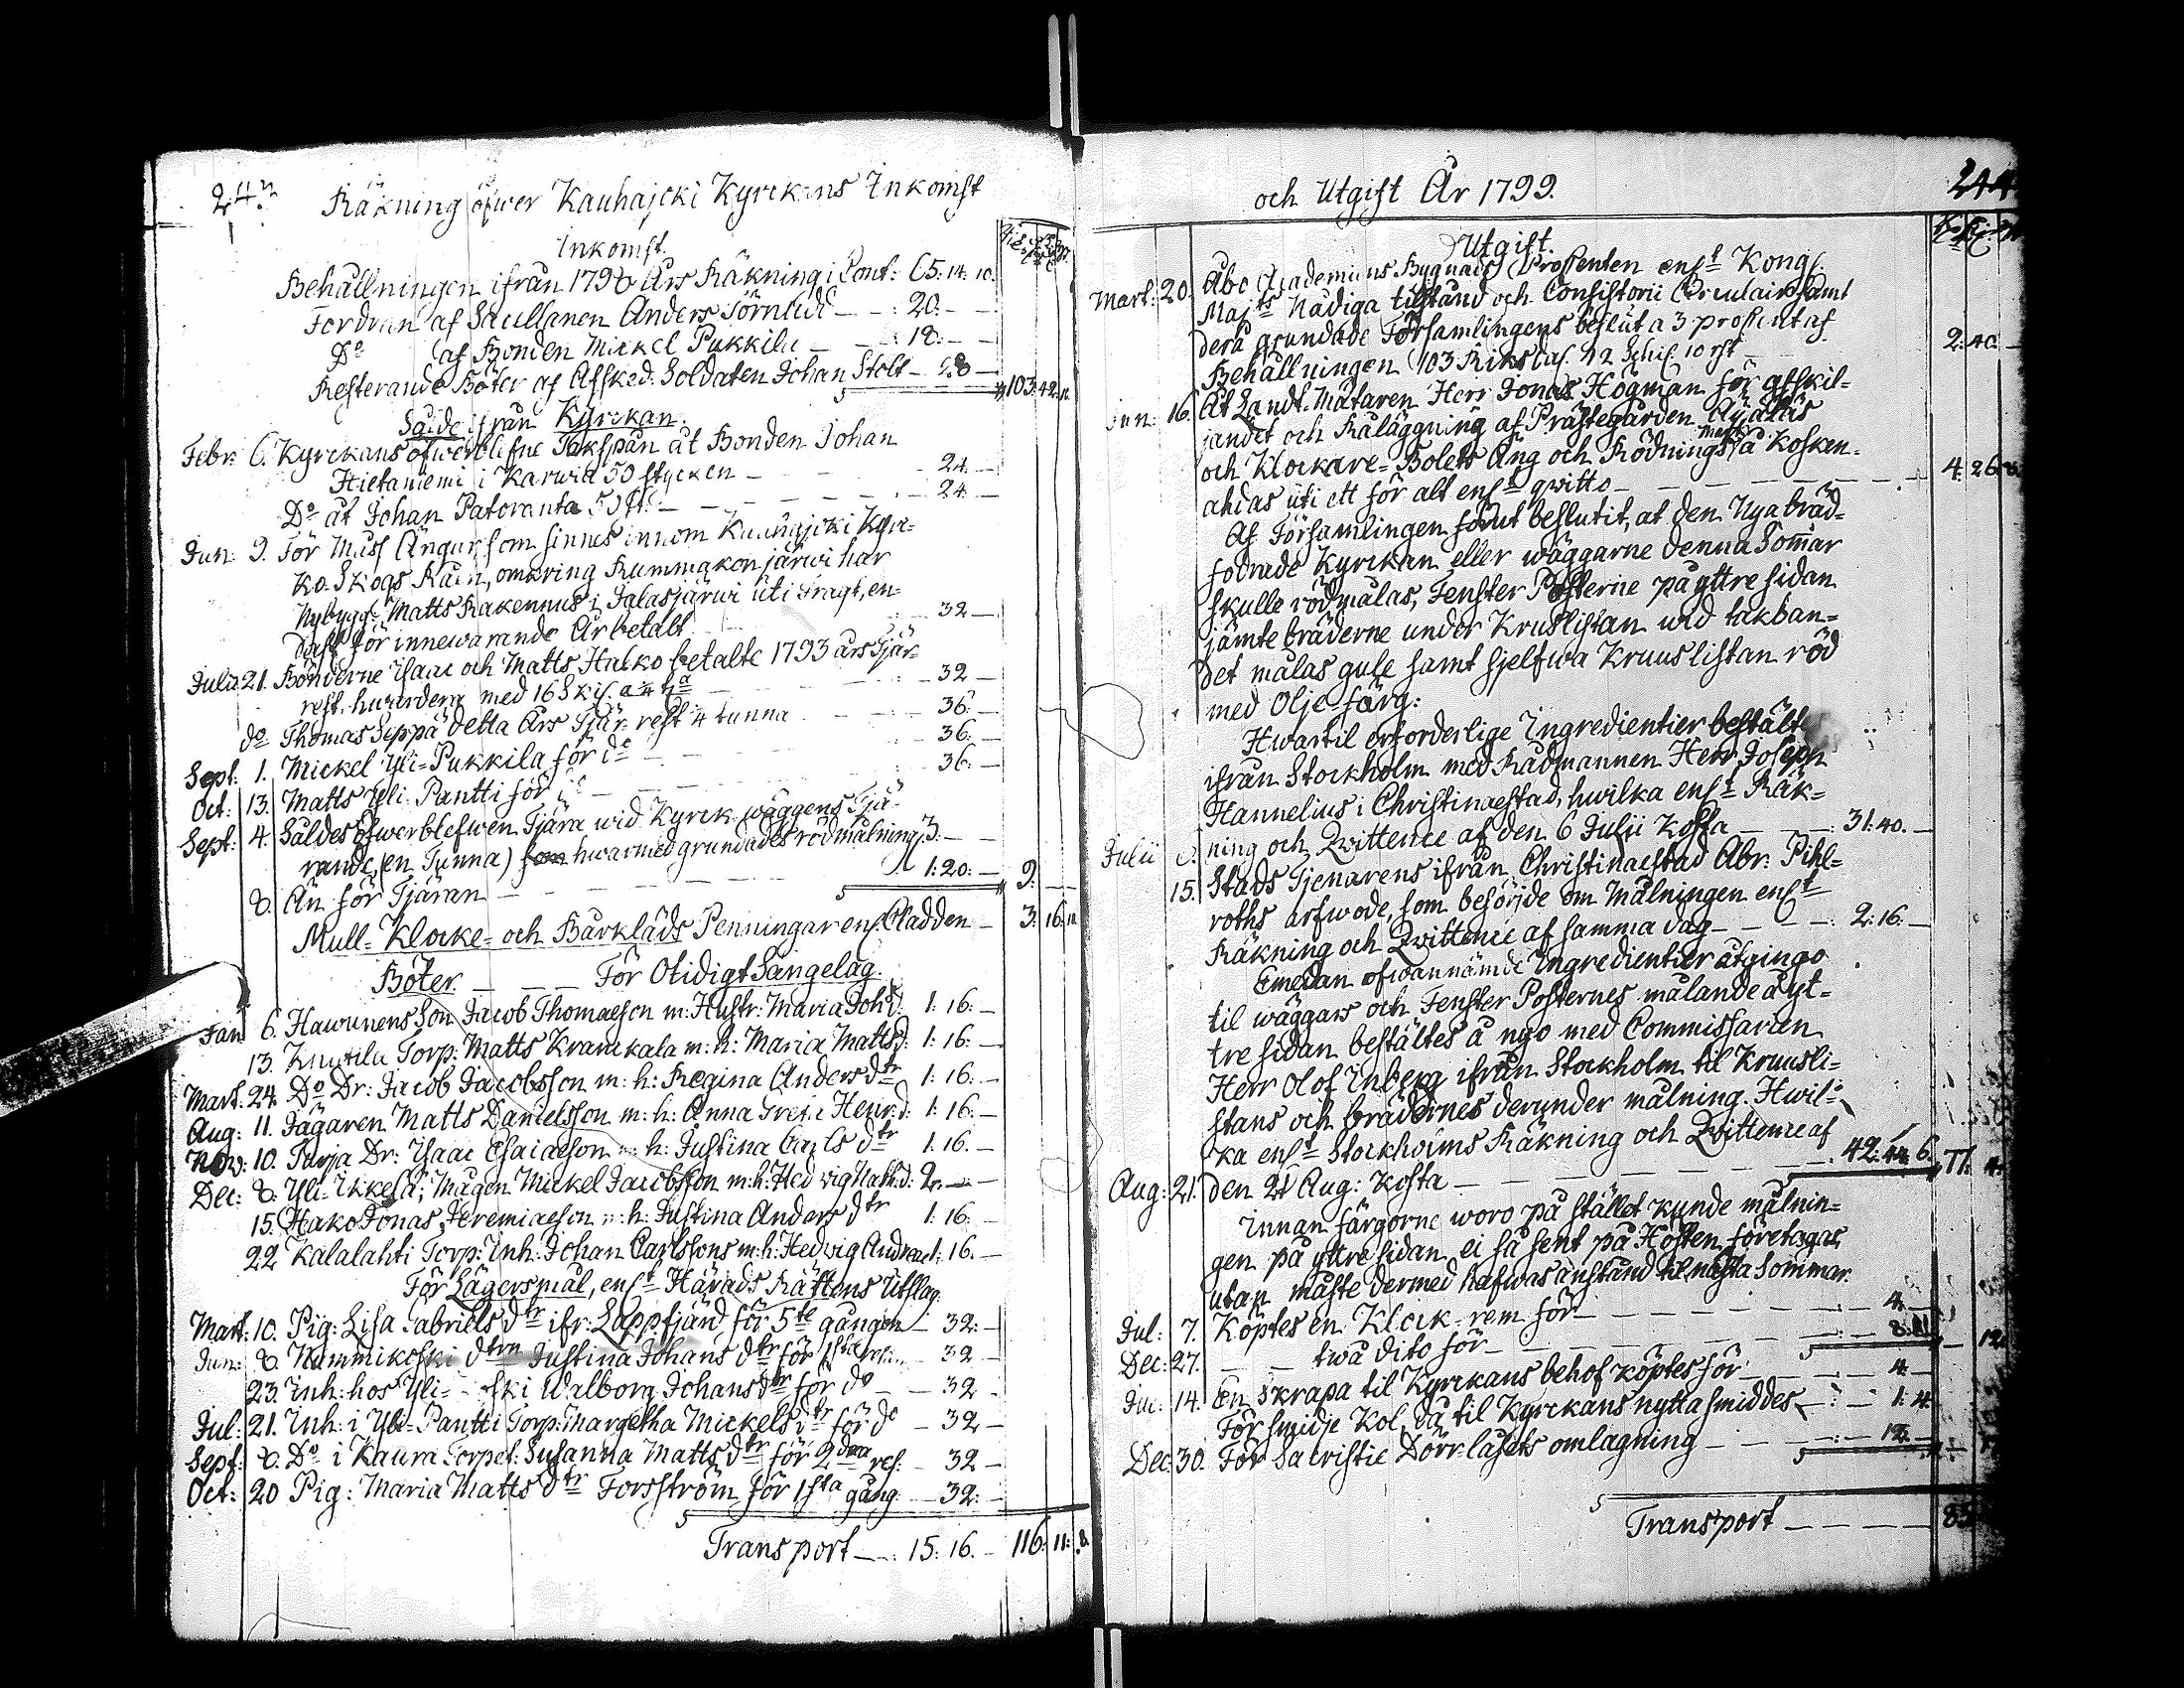 243 Räkning öfwer Kauhajocki Kyrckans Inkomst
Inkomst.
Behållningen ifrån 1798 Års Räkning i Cont: 65. 14. 10.
Fordran af Sacellanen Anders Törnudd — 20. —
Do af Bonden Mickel Pukkila — 18. —
Resterande Böter af Afsked. Soldaten Johan Stolt — 28 — 103. 42. 10.
Sålde ifrån Kyrckan.
Febr: 6. Kyrckans öfwerblefne Takspån åt Bonden Johan
Hietaniemi i Karwia 50 stycken — 24. —
Do åt Johan Patoranta 50 st: — 24. —
Jun: 9. För Muss Ängar som finnes innom Kauhajocki Kyr-
ko-Skogs Rå en, omkring Kummakonjärwi har
Nybygg: Matts Rakennus i Jalasjärwi uti Fragt, en-
dast för innewarande År betalt — 32 —
Julii 21. Bönderne Isaac och Matts Halko betalte 1793 års Tjär-
rest. hwardera med 16 Skil. — 32 —
do Thomas Seppä detta Års Tjär-rest 4 tunna — 36. —
Sept: 1. Mickel Yli-Pukkila för do — 36. —
Oct: 13. Matts Yli-Pantti för do — 36. —
Sept: 4. Såldes öfwerblefwen Tjära wid Kyrck-wäggens Tjä-
rande, (en Tunna) hwarmed grundades rödmålning 3. —
8. Än för Tjäran — 1: 20: — 9. —
Mull-Klocke- och Bårkläds Penningar ens. Cladden — 3. 16. 10
Böter. — För Otidigt Sängelag.
Jan 6. Hawunens Son Jacob Thomaeson m: Hustr: Maria Joh: d. 1: 16: —
13. Knutila Torp: Matts Kranckala m: h: Maria Matts d: 1: 16: —
Mart: 24. Do Dr: Jacob Jacobsson m: h: Regina Anders dtr 1: 16: —
Aug: 11. Jägaren Matts Danielsson m: h: Anna Greta Henr: d: 1: 16: —
Now: 10. Dr: Isaac Esaiaeson m: h: Justina Carls dtr 1: 16. —
Dec: 8. Yli-Ikkelä, Mågen Mickel Jacobsson m: h: Hedwig Math: d: 2. —
15. Hako Jonas Jeremiaeson m: h: Justina Anders dtr 1: 16. —
22 Kalalahti Torp: Inh: Johan Carlssons m: h: Hedwig Andreae 1: 16. —
För Lägersmål, enst Härads Rättens Utslag.
Mart: 10. Pig: Lisa Gabriels dtr ifr: Lappfjärd för 5te gången — 32: —
Jun: 8. Nummikoski dtrn Justina Johans dtr för 1sta — 32 —
23. Inh: hos Yli- Walborg Johans dtr för do — 32 —
Jul: 21. Inh: i Yli-Pantti Torp: Margetha Mickels dtr för do — 32 —
Sept: 8. Do i Kaura Torpet: Susanna Matts dtr för 2dra res: — 32 —
Oct: 20 Pig: Maria Matts dtr Forsström för 1sta gång. — 32: —
Transport — 15: 16. — 116: 11: 8.
och Utgift År 1799. 244
Utgift.
Mart: 20. Åbo Academiens Bygnads Procenten enst Kongl
Majts Nådiga tilstånd och Consistorii Circulair samt
derå grundade Församlingens beslut a 3 procent af
Behållningen 103 Riksdal. 42 Schil. 10 rst — 2: 40: —
Jun: 16. Åt Landt-Mätaren Herr Jonas Högman för afskil-
jandet och Råläggning af Prästegården Äijäläs
och Klockare-Bolets Äng och Rödnings mark å Kosken-
ahdas uti ett för alt enst qwitto — 4. 26.
Af Församlingen förut beslutit, at den Nya bräd-
fodrade Kyrckan eller wäggarne denna Sommar
skulle rödmålas, Fenster Posterne på yttre sidan
jämte bräderne under Kruslistan wid takban-
det målas gule samt sjelfwa Kruuslistan röd
med Olje-färg:
Hwartil erforderlige Ingredientier bestältes
ifrån Stockholm med Rådmannen Herr Joseph
Hannelius i Christinaestad, hwilka enst Räk-
Julii 6. ning och Qwittence af den 6 Julii kosta — 31: 40. —
15. Stads Tjenarens ifrån Christinaestad Abr: Pihl-
roths arfwode, som besörjde om Målningen enst
Räkning och Qwittence af samma dag — 2: 16. —
Emedan ofwannämde Ingredientier åtgingo
til wäggars och Fenster Posternes målande å yt-
tre sidan bestältes å nyo med Commissarien
Herr Olof Inberg ifrån Stockholm til Kruusli-
stans och brädernes derunder målning. Hwil-
ka enst Stockholms Räkning och Qwittence af
Aug: 21. den 21 Aug: kosta — 42: 44. 6. 77. 4.
Innan färgorne woro på stället kunde målnin-
gen på yttre sidan ei så sent på Hösten företagas
utan måste dermed hafwas anstånd til nästa Sommar.
Jul: 7. Köptes en Klock-rem för — 4. —
Dec: 27. — twå dito för — 8. — 12.
14. En Skrapa til Kyrckans behof köptes för — 4. —
För smidje Kol, då til Kyrckans nytta smiddes — 1: 4.
Dec: 30. För Sacristie Dörr-låsets omlagning — 12. —
Transport —